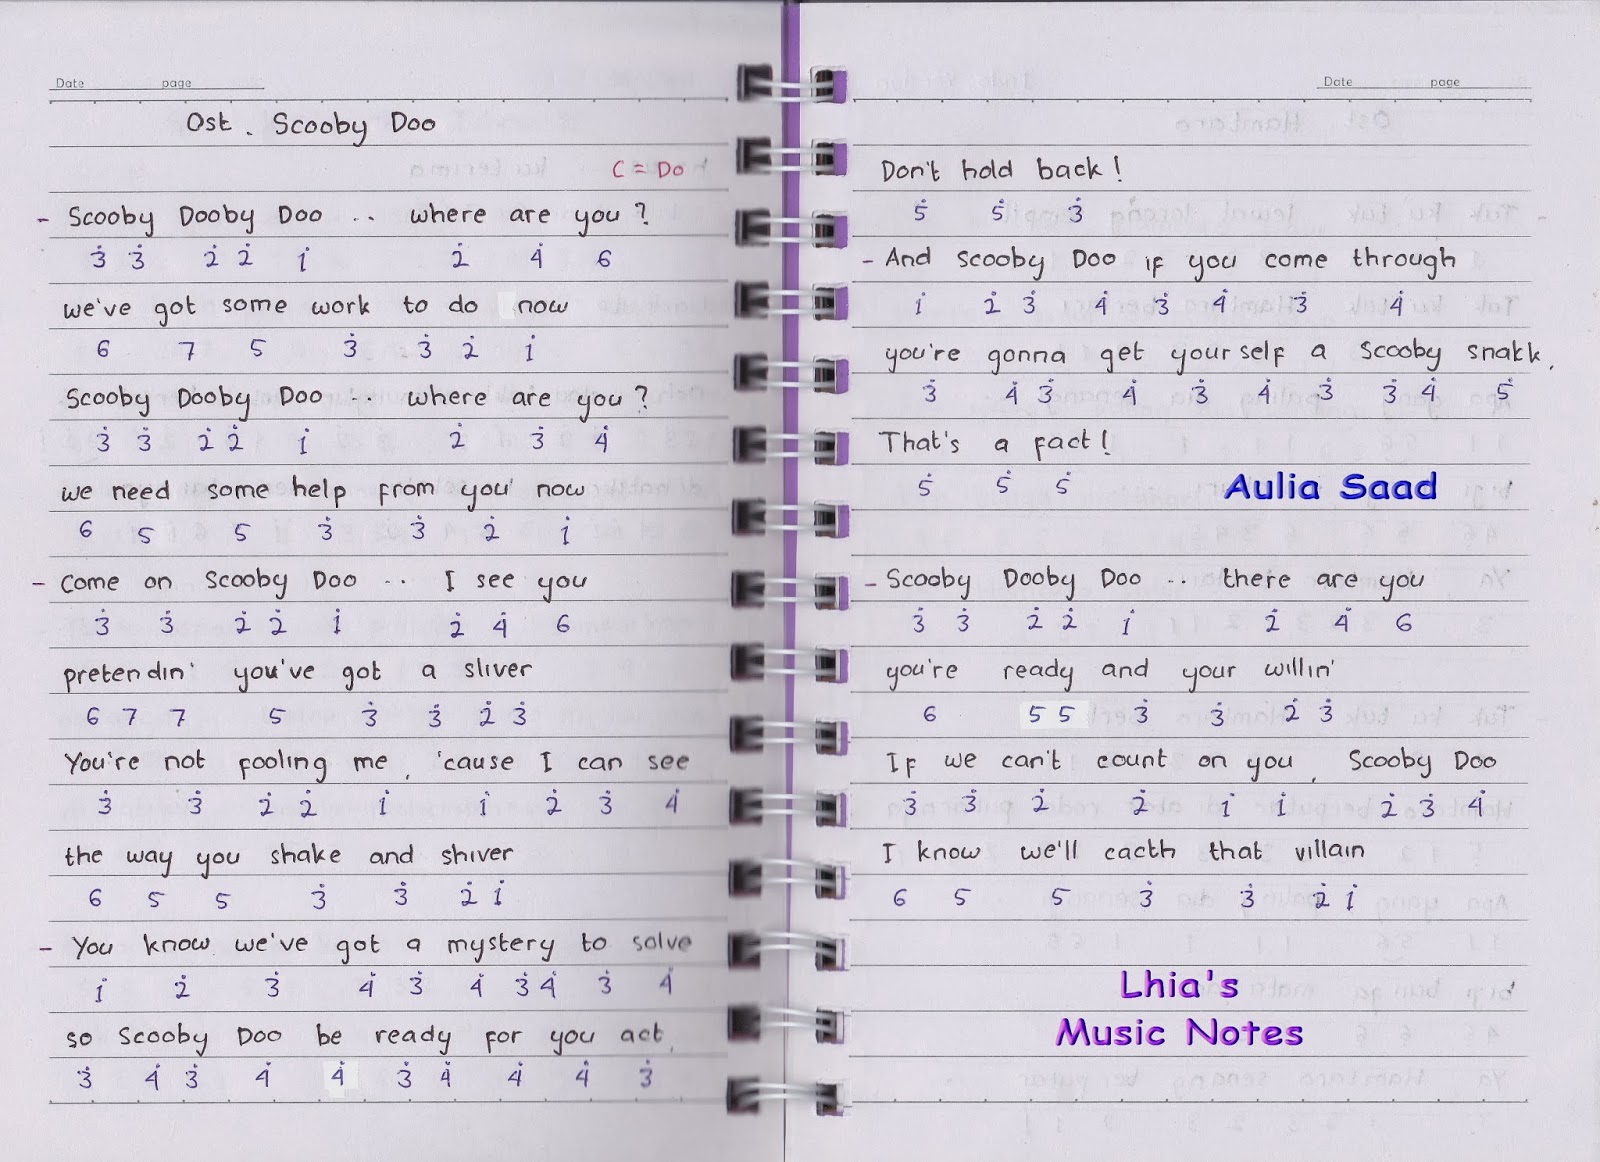 Date page
Ost. Scooby Doo
C = Do
- Scooby Dooby Doo .. where are you?
3̇ 3̇ 2̇ 2̇ 1̇ 2̇ 4̇ 6
we've got some work to do now
6 7 5 3̇ 3̇ 2̇ 1̇
Scooby Dooby Doo .. where are you?
3̇ 3̇ 2̇ 2̇ 1̇ 2̇ 3̇ 4̇
we need some help from you' now
6 5 5 3̇ 3̇ 2̇ 1̇
- Come on Scooby Doo .. I see you
3̇ 3̇ 2̇ 2̇ 1̇ 2̇ 4̇ 6
pretendin' you've got a sliver
6 7 7 5 3̇ 3̇ 2̇ 3̇
You're not fooling me, 'cause I can see
3̇ 3̇ 2̇ 2̇ 1̇ 1̇ 2̇ 3̇ 4̇
the way you shake and shiver
6 5 5 3̇ 3̇ 2̇ 1̇
- You know we've got a mystery to solve
1̇ 2̇ 3̇ 4̇ 3̇ 4̇ 3̇ 4̇ 3̇ 4̇
so Scooby Doo be ready for you act,
3̇ 4̇ 3̇ 4̇ 4̇ 3̇ 4̇ 4̇ 4̇ 3̇
Date page
Don't hold back!
5̇ 5̇ 3̇
- And scooby Doo if you come through
1̇ 2̇ 3̇ 4̇ 3̇ 4̇ 3̇ 4̇
you're gonna get yourself a scooby snakk,
3̇ 4̇ 3̇ 4̇ 3̇ 4̇ 3̇ 3̇ 4̇ 5̇
That's a fact!
5̇ 5̇ 5̇
Aulia Saad
- Scooby Dooby Doo .. there are you
3̇ 3̇ 2̇ 2̇ 1̇ 2̇ 4̇ 6
you're ready and your willin'
6 5 5 3̇ 3̇ 2̇ 3̇
If we can't count on you, Scooby Doo
3̇ 3̇ 2̇ 2̇ 1̇ 1̇ 2̇ 3̇ 4̇
I know we'll cacth that villain
6 5 5 3̇ 3̇ 2̇ 1̇
Lhia's
Music Notes